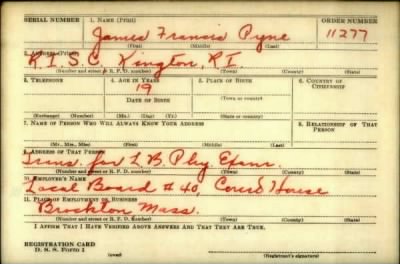 SERIAL NUMBER 1. NAME (Print) ORDER NUMBER
James Francis Pyne 11277
(First) (Middle) (Last)
2. ADDRESS (Print)
R.I.S.C. Kington, R.I.
(Number and street or R. F. D. number) (Town) (County) (State)
3. TELEPHONE 4. AGE IN YEARS 5. PLACE OF BIRTH 6. COUNTRY OF CITIZENSHIP
19
DATE OF BIRTH (Town or county)
(Exchange) (Number) (Mo.) (Day) (Yr.) (State or country)
7. NAME OF PERSON WHO WILL ALWAYS KNOW YOUR ADDRESS 8. RELATIONSHIP OF THAT PERSON
(Mr., Mrs., Miss) (First) (Middle) (Last)
9. ADDRESS OF THAT PERSON
Trans. for L B Phy. Exam.
(Number and street or R. F. D. number) (Town) (County) (State)
10. EMPLOYER'S NAME
Local Board # 40, Court House
11. PLACE OF EMPLOYMENT OR BUSINESS
Brockton Mass.
(Number and street or R. F. D. number) (Town) (County) (State)
I AFFIRM THAT I HAVE VERIFIED ABOVE ANSWERS AND THAT THEY ARE TRUE.
REGISTRATION CARD
D. S. S. FORM 1
(over) (Registrant's signature)